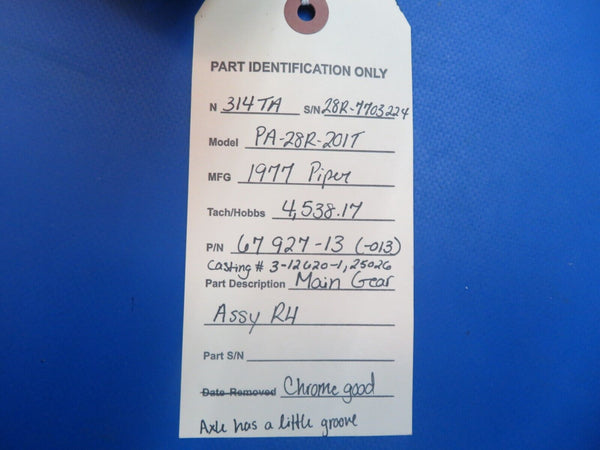 PART IDENTIFICATION ONLY
N 314TA S/N 28R-7703224
Model PA-28R-201T
MFG 1977 Piper
Tach/Hobbs 4,538.17
P/N 67927-13 (-013)
Casting # 3-12620-1, 25026
Part Description Main Gear
Assy RH
Part S/N
Date Removed Chrome good
Axle has a little groove